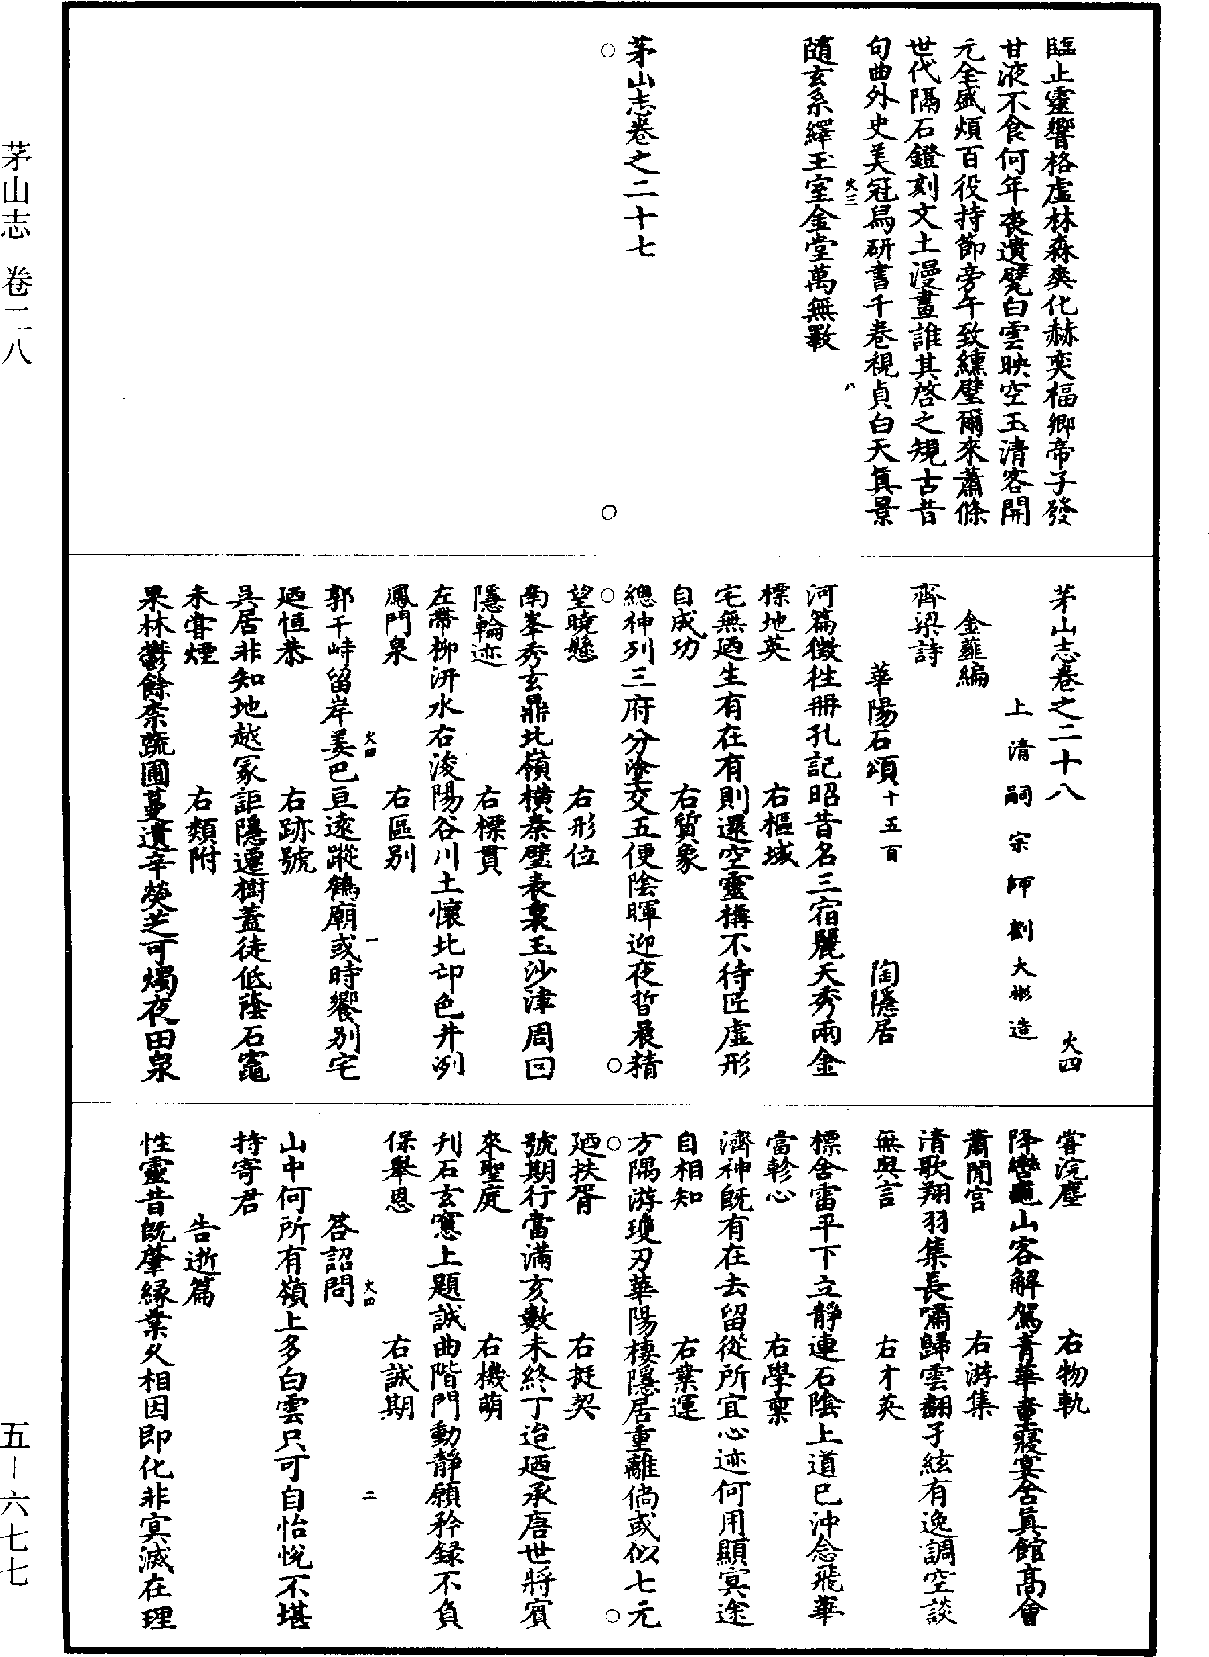 茅山志 卷二八
臨止靈響格虛林森爽化赫奕福鄉帝子發
甘液不食何年喪遺甓白雲映空玉清客開
元全盛煩百役持節旁午致纁璧爾來蕭條
世代隔石鐙刻文土漫畫誰其啓之規古昔
句曲外史美冠舄研書千卷視貞白天真景
火三 八
隨玄系繹玉室金堂萬無斁
茅山志卷之二十七
茅山志卷之二十八 火四
上清嗣宗師劉大彬造
金薤編
齊梁詩
華陽石頌十五首 陶隱居
河篇徵往冊孔記昭昔名三宿麗天秀兩金
標地英 右樞域
宅無迺生有在有則還空靈構不待匠虛形
自成功 右質象
總神列三府分塗交五便陰暉迎夜晢晨精
望曉懸 右形位
南峯秀玄鼎北嶺橫秦璧表裏玉沙津周回
隱輪迹 右標貫
左帶柳汧水右浚陽谷川土懷北邙色井洌
鳳門泉 右區別
火四 一
郭千峙留岸姜巴亘遠蹤鶴廟或時饗別宅
迺恒恭 右跡號
吳居非知地越冢詎隱遷樹蓋徒低蔭石竈
未嘗煙 右類附
果林鬱餘柰蔬圃蔓遺辛熒芝可燭夜田泉
嘗浣塵 右物軌
降轡龜山客解駕青華童寢宴含真館高會
蕭閒宮 右游集
清歌翔羽集長嘯歸雲翻子絃有逸調空談
無與言 右才英
標舍雷平下立靜連石陰上道已沖念飛華
當軫心 右學稟
濟神旣有在去留從所宜心迹何用顯冥途
自相知 右業運
方隅游瓊刃華陽棲隱居重離倘或似七元
迺扶胥 右挺契
號期行當滿亥數未終丁迨迺承唐世將賓
來聖庭 右機萌
刋石玄窻上題誠曲階門動靜願矜録不負
保舉恩 右誠期
火四 二
答詔問
山中何所有嶺上多白雲只可自怡悅不堪
持寄君
告逝篇
性靈昔旣肇縁業久相因即化非冥滅在理
五－六七七